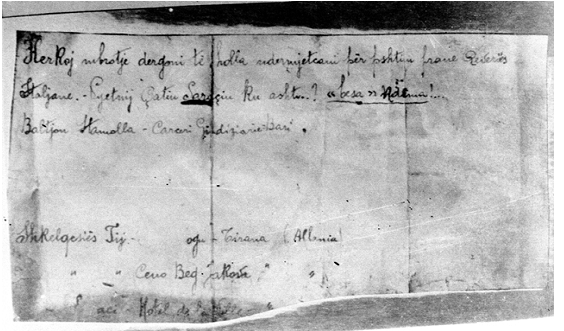 Kerkoj mbrotje dergoni të holla ndermjetcani për pshtyn prane Qeveriis
Italjane. - Pyetnij Qateu Saraçiu ku asht..? "besa" Ndema!..
Babtjon Hamolla - Carceri Giudiziarie Bari.
Shkelqesiës Tij ogu - Tirana (Albania)
" " Ceno Beg " "
aci - Hotel de "